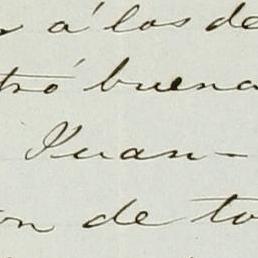 á los de
tró buena
Juan-
on de to